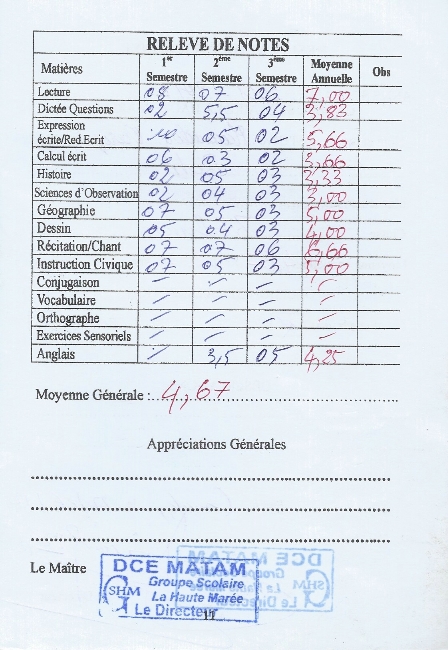 RELEVE DE NOTES
Matières 1er Semestre 2ème Semestre 3ème Semestre Moyenne Annuelle Obs
Lecture 08 07 06 7,00
Dictée Questions 02 5,5 04 3,83
Expression écrite/Red.Ecrit 10 05 02 5,66
Calcul écrit 06 03 02 3,66
Histoire 02 05 03 3,33
Sciences d'Observation 02 04 03 3,00
Géographie 07 05 03 5,00
Dessin 05 04 03 4,00
Récitation/Chant 07 07 06 6,66
Instruction Civique 07 05 03 5,00
Conjugaison - - - -
Vocabulaire - - - -
Orthographe - - - -
Exercices Sensoriels - - - -
Anglais - 3,5 05 4,25
Moyenne Générale : 4,67
Appréciations Générales
Le Maître
DCE MATAM
Groupe Scolaire
SHM La Haute Marée
Le Directeur
11